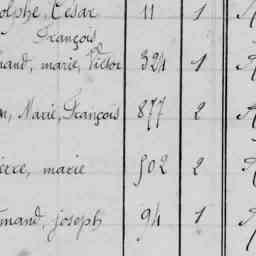 olphe, Cesar 11 1
François
nand, marie, Victor 324 1
n, Marie, François 877 2
ierre, marie 502 2
mand, joseph 94 1